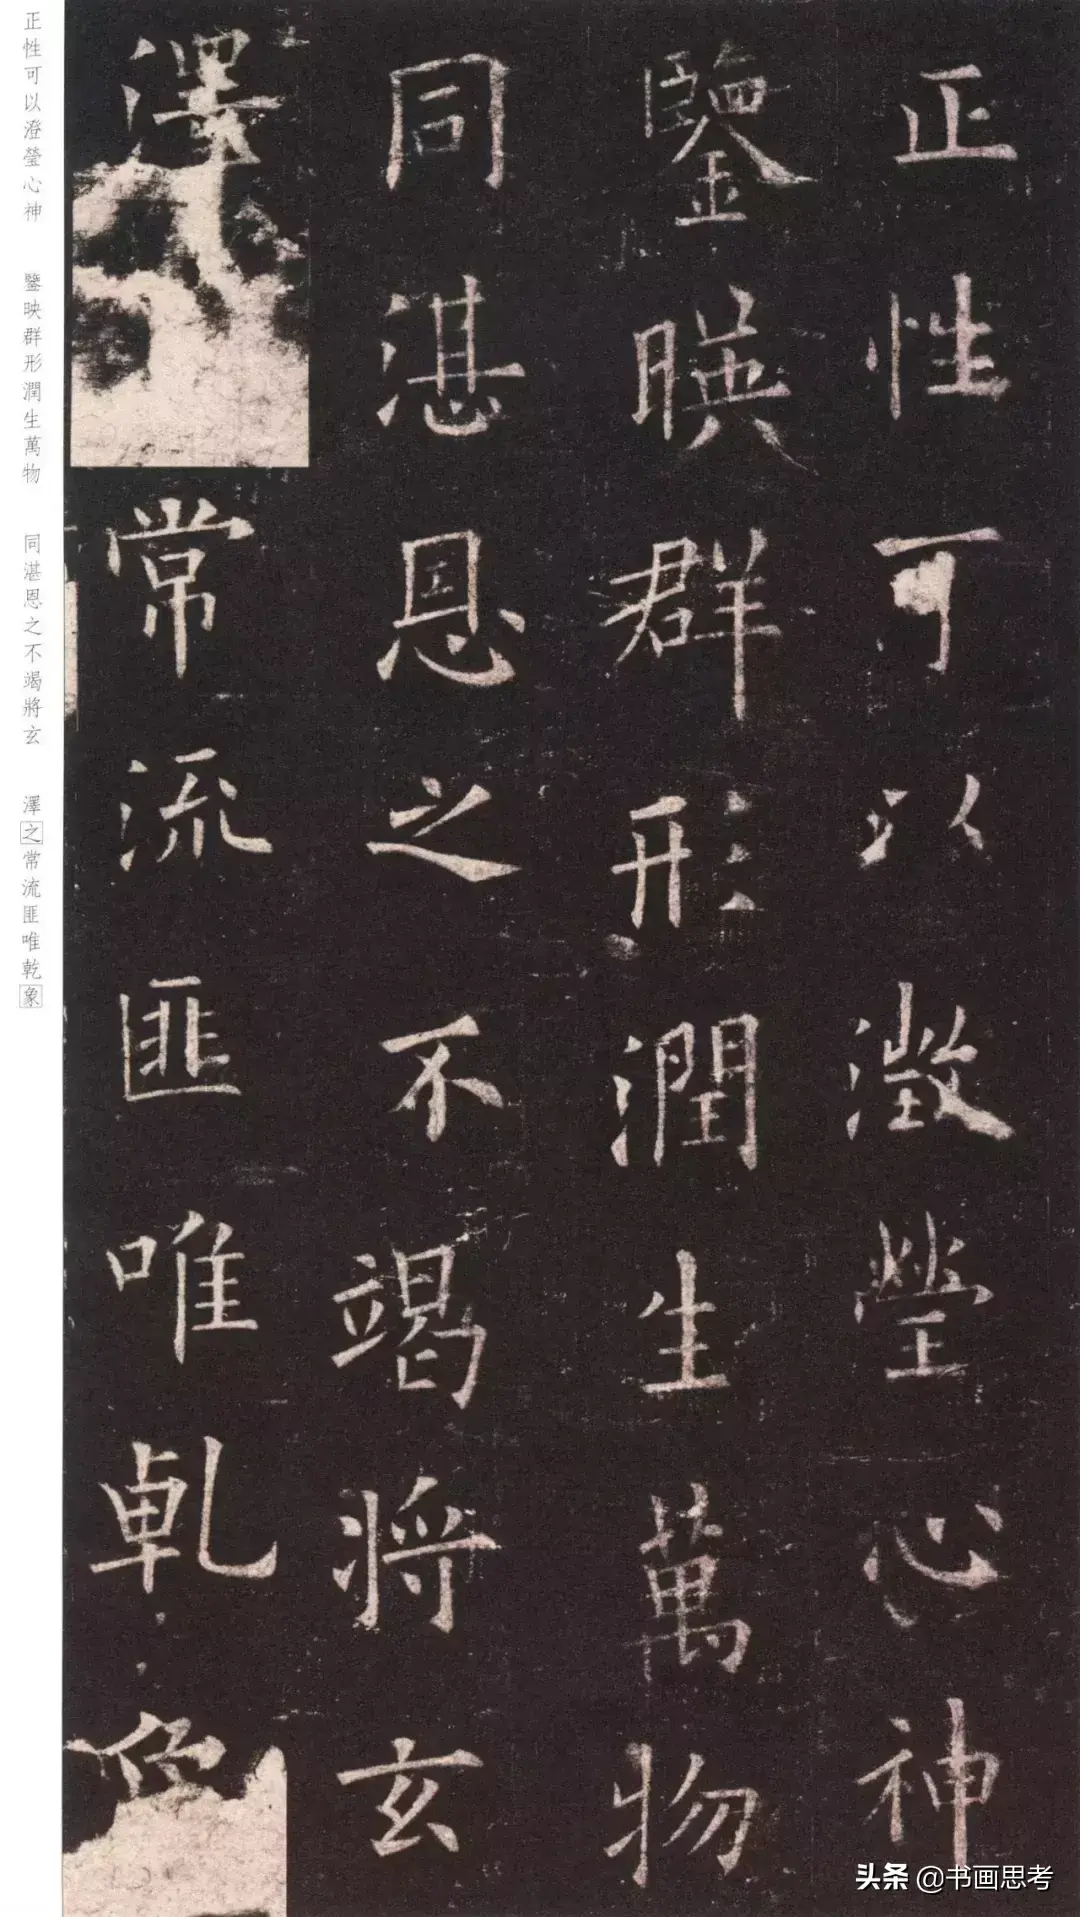 正性可以澂瑩心神
鑒暎群形潤生萬物
同湛恩之不竭將玄
澤常流匪唯乾象
正性可以澄瑩心神 鑒映群形潤生萬物 同湛恩之不竭將玄 澤之常流匪唯乾象
头条 @书画思考